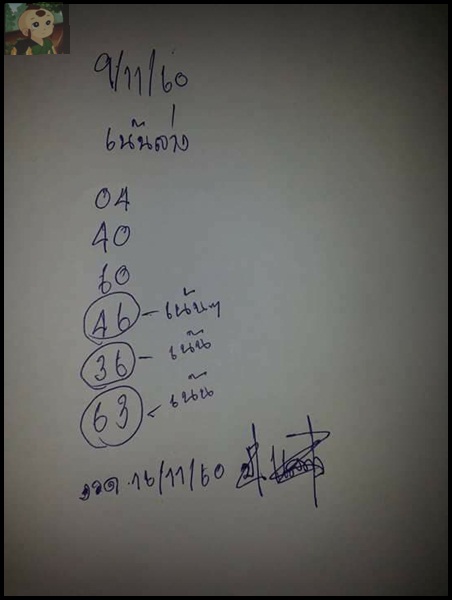 9/11/60
เน้นล่าง
04
40
60
46 - เน้นๆ
36 - เน้น
63 - เน้น
งวด.16/11/60